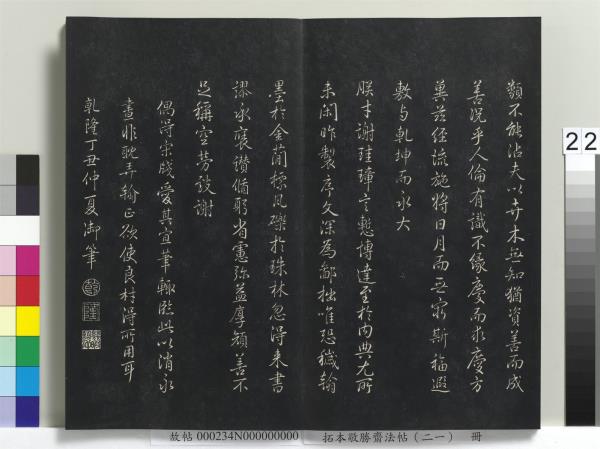 類不能沾夫以卉木無知猶資善而成
善況乎人倫有識不緣慶而求慶方
冀茲經流施將日月而無窮斯福遐
敷與乾坤而永大
朕才謝珪璋言慙博達至於內典尤所
未閑昨製序文深為鄙拙唯恐穢翰
墨於金簡標瓦礫於珠林忽得來書
謬承褒讚循躬省慮彌益厚顏善不
足稱空勞致謝
偶得宋牋愛其宜筆輒臨此以消永
晝非耽弄翰正欲使良材得所用耳
乾隆丁丑仲夏御筆
22
故帖 000234N000000000
拓本敬勝齋法帖（二一） 冊